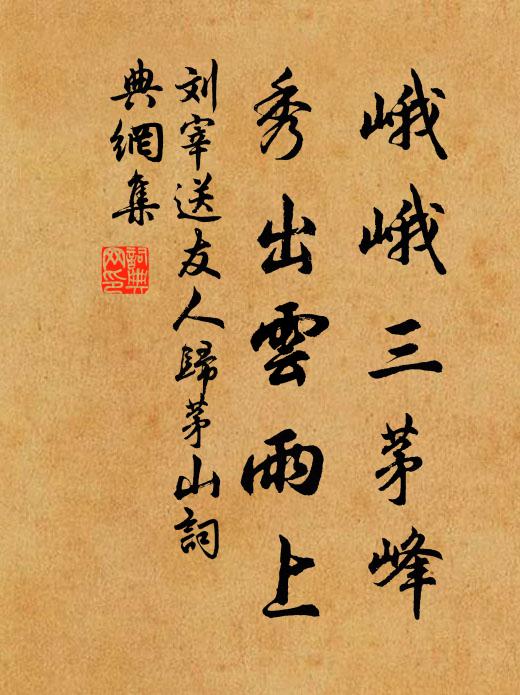 峨峨三茅峰
秀出雲雨上
刘宰送友人歸茅山詞
典網集
詞典网印